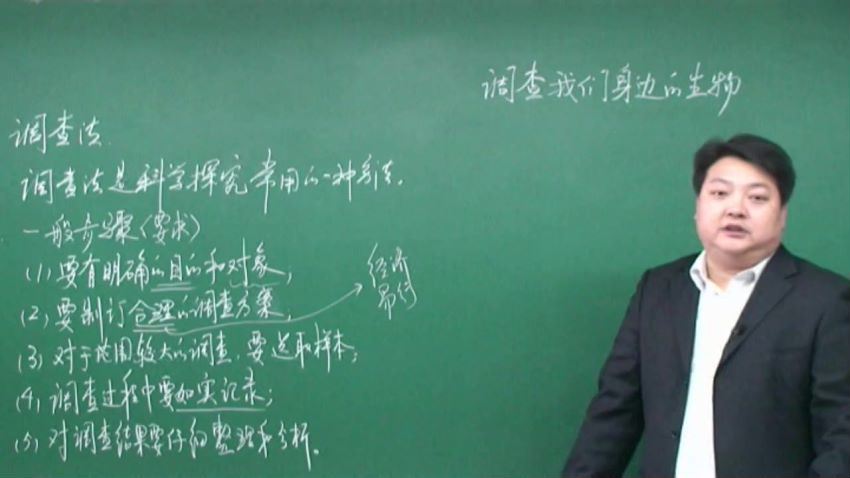 调查我们身边的生物
调查法
调查法是科学探究常用的一种方法。
一般步骤(要求)
(1)要有明确的目的和对象;
(2)要制订合理的调查方案;
经济
易行
(3)对于范围较大的调查,要选取样本;
(4)调查过程中要如实记录;
(5)对调查结果要仔细整理和分析。